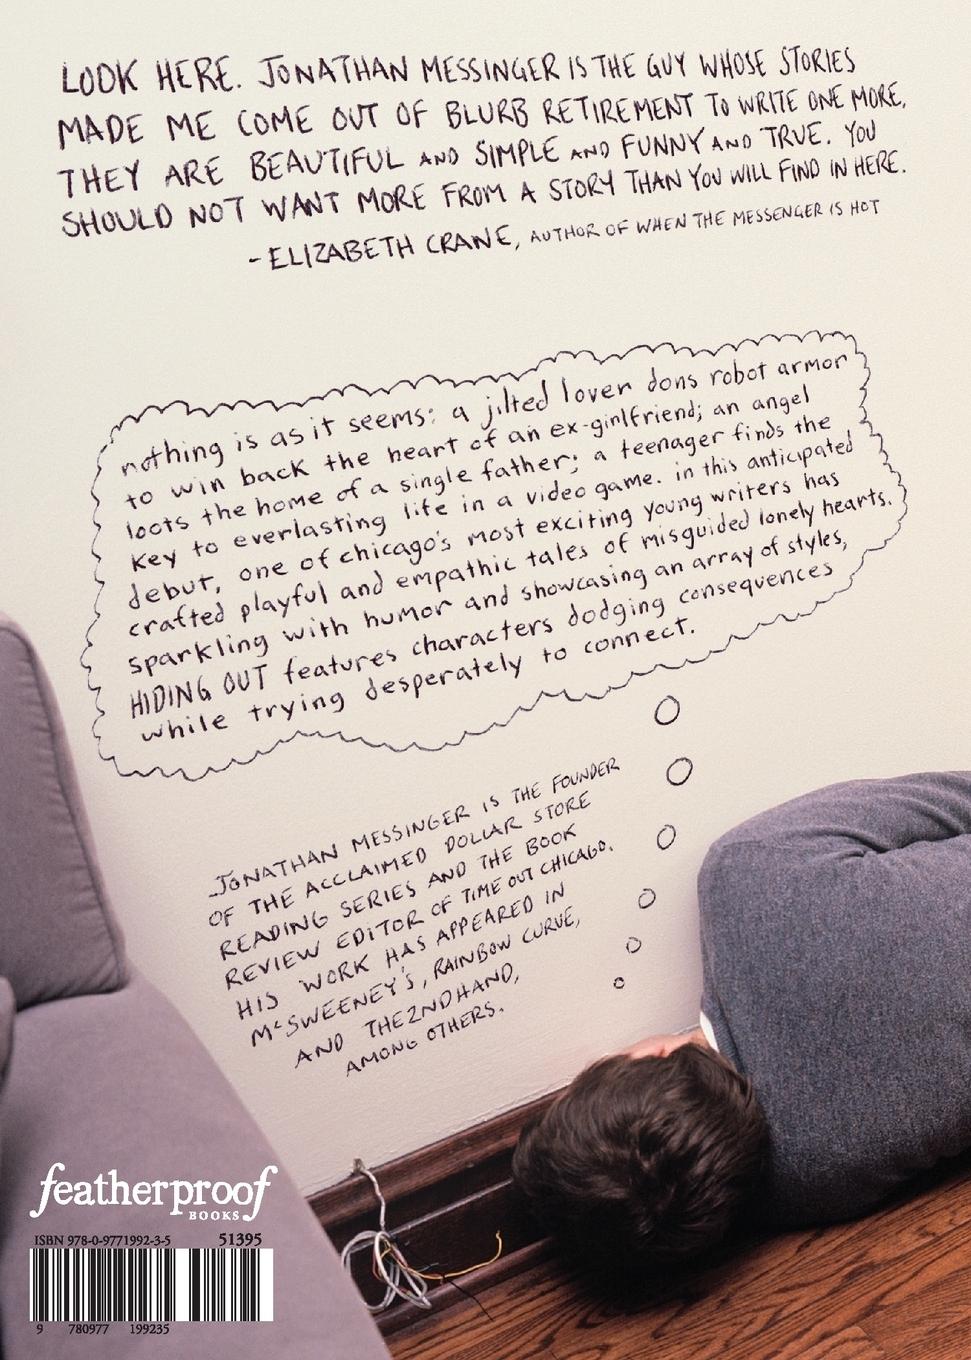 LOOK HERE. JONATHAN MESSINGER IS THE GUY WHOSE STORIES
MADE ME COME OUT OF BLURB RETIREMENT TO WRITE ONE MORE,
THEY ARE BEAUTIFUL AND SIMPLE AND FUNNY AND TRUE. YOU
SHOULD NOT WANT MORE FROM A STORY THAN YOU WILL FIND IN HERE.
-ELIZABETH CRANE, AUTHOR OF WHEN THE MESSENGER IS HOT
nothing is as it seems: a jilted lover dons robot armor
to win back the heart of an ex-girlfriend; an angel
loots the home of a single father; a teenager finds the
key to everlasting life in a video game. in this anticipated
debut, one of chicago's most exciting young writers has
crafted playful and empathic tales of misguided lonely hearts.
sparkling with humor and showcasing an array of styles,
HIDING OUT features characters dodging consequences
while trying desperately to connect.
JONATHAN MESSINGER IS THE FOUNDER
OF THE ACCLAIMED DOLLAR STORE
READING SERIES AND THE BOOK
REVIEW EDITOR OF TIME OUT CHICAGO.
HIS WORK HAS APPEARED IN
McSWEENEY'S, RAINBOW CURVE,
AND THE2NDHAND,
AMONG OTHERS.
featherproof
BOOKS
ISBN 978-0-9771992-3-5 51395
9 780977 199235